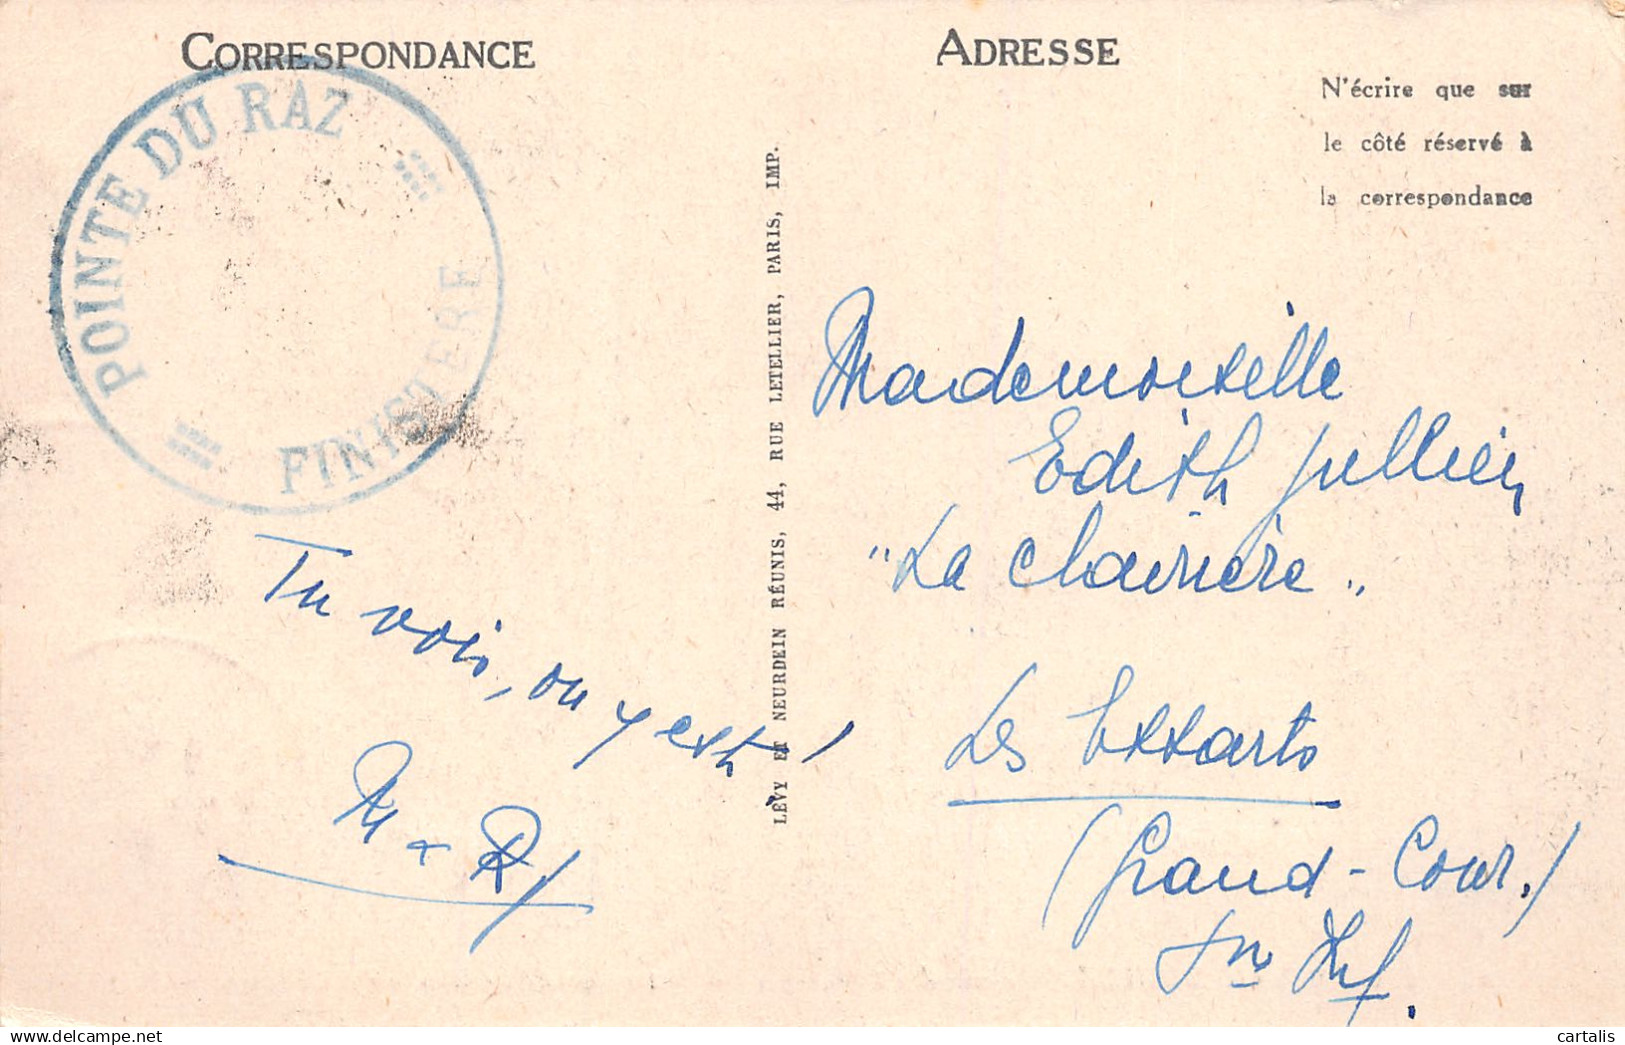 CORRESPONDANCE
POINTE DU RAZ
FINISTERE
Tu vois, on y est !
M + R
LÉVY ET NEURDEIN RÉUNIS, 44, RUE LETELLIER, PARIS, IMP.
ADRESSE
N'écrire que sur
le côté réservé à
la correspondance
Mademoiselle
Edith Jullien
"La Clairière"
Les Essarts
(Grand-Cour.)
Sne Inf.
cartalis
delcampe.net